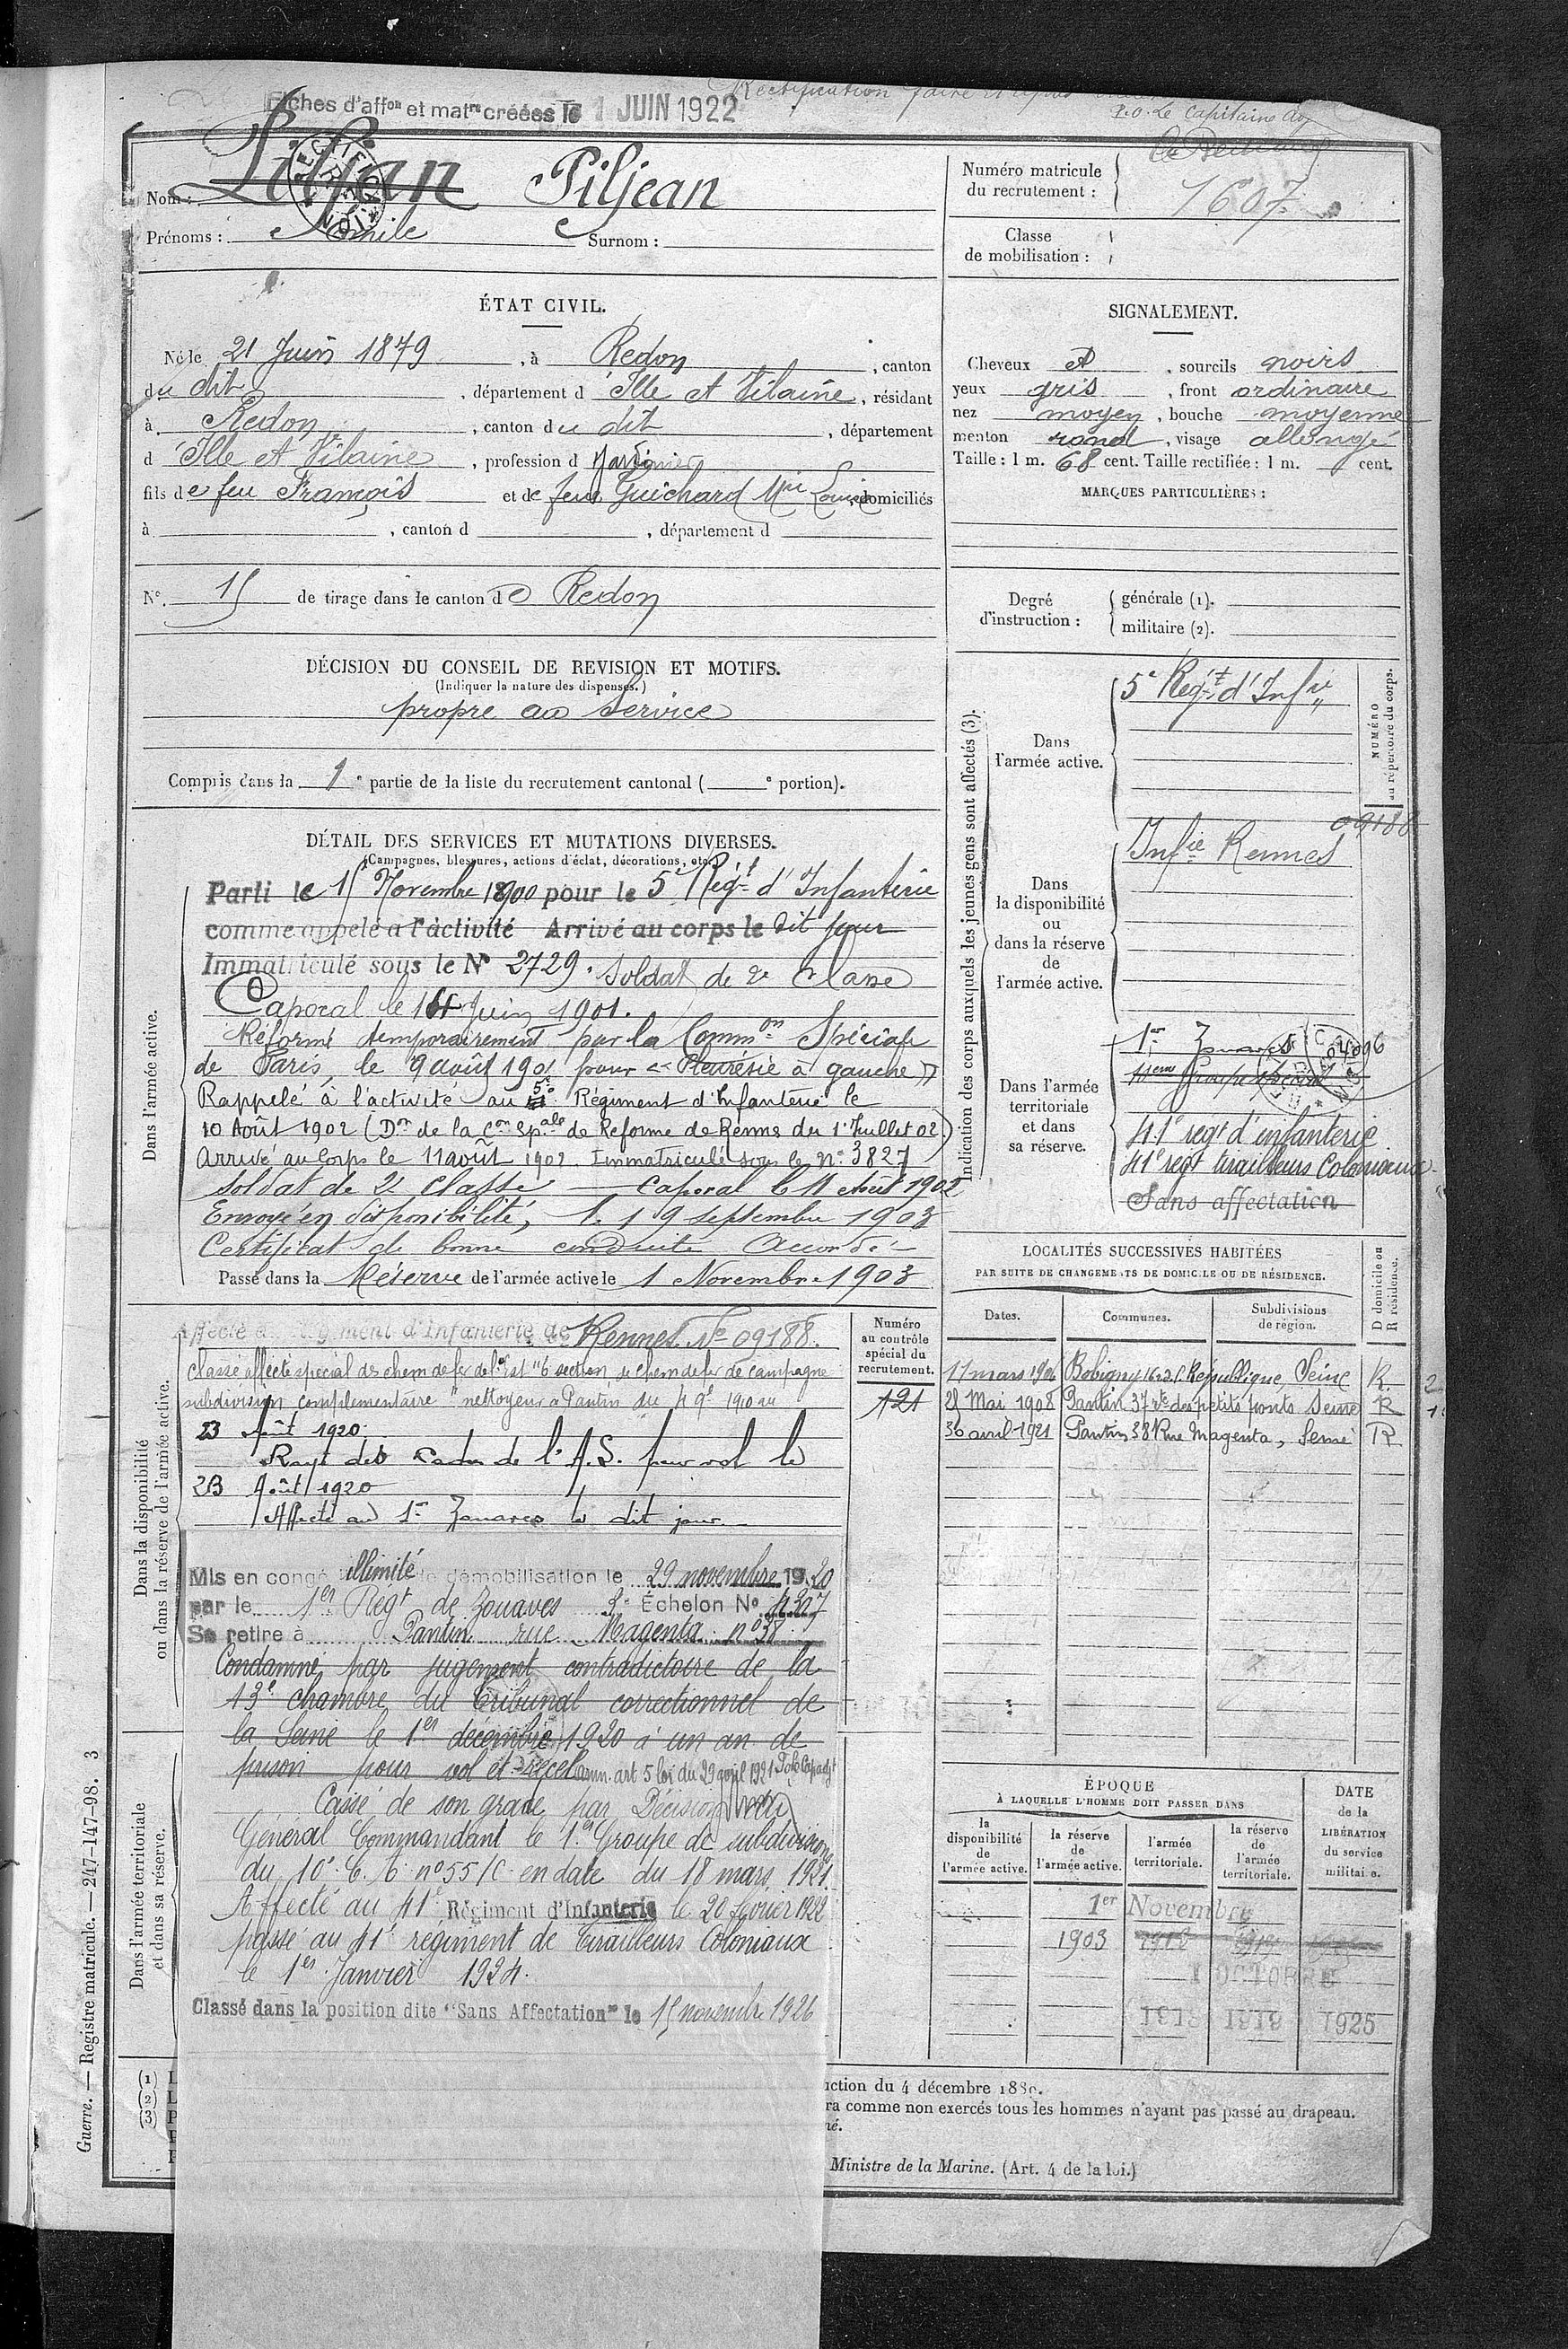 Fiches d'affon et matre créées le 1 JUIN 1922
Rectification faite
P.O. Le Capitaine
Nom : Piljean
Prénoms : Emile Surnom :
Numéro matricule
du recrutement : 1607
Classe
de mobilisation :
ÉTAT CIVIL.
Né le 21 Juin 1879, à Redon, canton
du dit, département d'Ille et Vilaine, résidant
à Redon, canton du dit, département
d'Ille et Vilaine, profession d Jardinier
fils de feu François et de feue Guichard Mie Louise, domiciliés
à , canton d , département d
N° 15 de tirage dans le canton de Redon
SIGNALEMENT.
Cheveux et, sourcils noirs
yeux gris, front ordinaire
nez moyen, bouche moyenne
menton rond, visage allongé
Taille : 1 m. 68 cent. Taille rectifiée : 1 m. cent.
MARQUES PARTICULIÈRES :
Degré
d'instruction :
générale (1).
militaire (2).
DÉCISION DU CONSEIL DE REVISION ET MOTIFS.
(Indiquer la nature des dispenses.)
propre au service
Compris dans la 1e partie de la liste du recrutement cantonal ( e portion).
DÉTAIL DES SERVICES ET MUTATIONS DIVERSES.
(Campagnes, blessures, actions d'éclat, décorations, etc.)
Dans l'armée active.
Parti le 15 Novembre 1900 pour le 5e Régt d'Infanterie
comme appelé à l'activité Arrivé au corps le dit jour
Immatriculé sous le N° 2729. Soldat de 2e classe
Caporal le 14 Juin 1901.
Réformé temporairement par la Common Spéciale
de Paris, le 9 août 1901 pour « Pleurésie à gauche »
Rappelé à l'activité au 5e Régiment d'Infanterie le
10 Août 1902 (Don de la Con Spale de Réforme de Rennes du 1er Juillet 02)
Arrivé au Corps le 11 août 1902. Immatriculé sous le n° 3827
Soldat de 2e classe — Caporal le 11 Août 1902
Envoyé en disponibilité, le 19 septembre 1903
Certificat de bonne conduite Accordé
Passé dans la Réserve de l'armée active le 1 Novembre 1903
Indication des corps auxquels les jeunes gens sont affectés (3).
NUMÉRO
au répertoire du corps.
Dans
l'armée active.
5e Régt d'Infie
Dans
la disponibilité
ou
dans la réserve
de
l'armée active.
Infie Rennes 09188
Dans l'armée
territoriale
et dans
sa réserve.
1er Zouaves
41e régt d'infanterie
41e régt tirailleurs Coloniaux
Sans affectation
Dans la disponibilité
ou dans la réserve de l'armée active.
Affecté au Régiment d'Infanterie de Rennes N° 09188.
Classé affecté spécial des chem de fer de l'Est "6 section de chem de fer de campagne
subdivision complémentaire" nettoyeur à Pantin du 4 9e 1910 au
23 Août 1920.
Rayé des Cadres de l'A.S. pour vol le
23 Août 1920
Affecté au 1er Zouaves le dit jour.
Mis en congé illimité de démobilisation le 29 novembre 1920
par le 1er Régt de Zouaves Echelon N° 4307
Se retire à Pantin rue Magenta n° 38
Condamné par jugement contradictoire de la
13e chambre du tribunal correctionnel de
la Seine le 1er décembre 1920 à un an de
prison pour vol et recel amn. art 5 loi du 29 avril 1921
Cassé de son grade par Décision
Général Commandant le 1er Groupe de subdivisions
du 10e C. n° 55/C en date du 18 mars 1921.
Affecté au 41e Régiment d'Infanterie le 20 février 1922
passé au 41e régiment de Tirailleurs Coloniaux
le 1er Janvier 1924.
Classé dans la position dite "Sans Affectation" le 15 novembre 1926
Dans l'armée territoriale
et dans sa réserve.
Numéro
au contrôle
spécial du
recrutement.
121
LOCALITÉS SUCCESSIVES HABITÉES
PAR SUITE DE CHANGEMENTS DE DOMICILE OU DE RÉSIDENCE.
Dates. Communes. Subdivisions
de région. D domicile ou
R résidence.
17 mars 1906 Bobigny République, Seine R.
25 Mai 1908 Pantin 37 rte des petits ponts Seine R
30 avril 1921 Pantin 38 Rue Magenta, Seine R
ÉPOQUE
À LAQUELLE L'HOMME DOIT PASSER DANS
la
disponibilité
de
l'armée active.
la réserve
de
l'armée active.
l'armée
territoriale.
la réserve
de
l'armée
territoriale.
DATE
de la
LIBÉRATION
du service
militaire.
1er Novembre
1903
1 OCTOBRE
1913 1919 1925
(1) L
(2) L
(3) P
uction du 4 décembre 1889.
ra comme non exercés tous les hommes n'ayant pas passé au drapeau.
né.
Ministre de la Marine. (Art. 4 de la loi.)
Guerre. — Registre matricule. — 247-147-98. 3